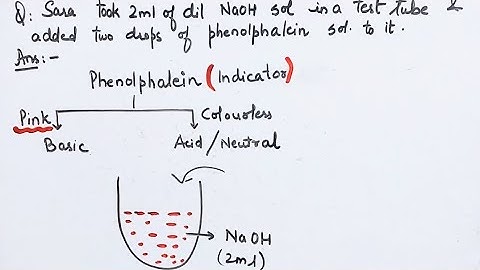 Q: Sara took 2ml of dil NaOH sol in a Test tube &
added two drops of phenolphalein sol. to it.
Ans:-
Phenolphalein (Indicator)
Pink Colourless
Basic Acid/Neutral
NaOH
(2ml)